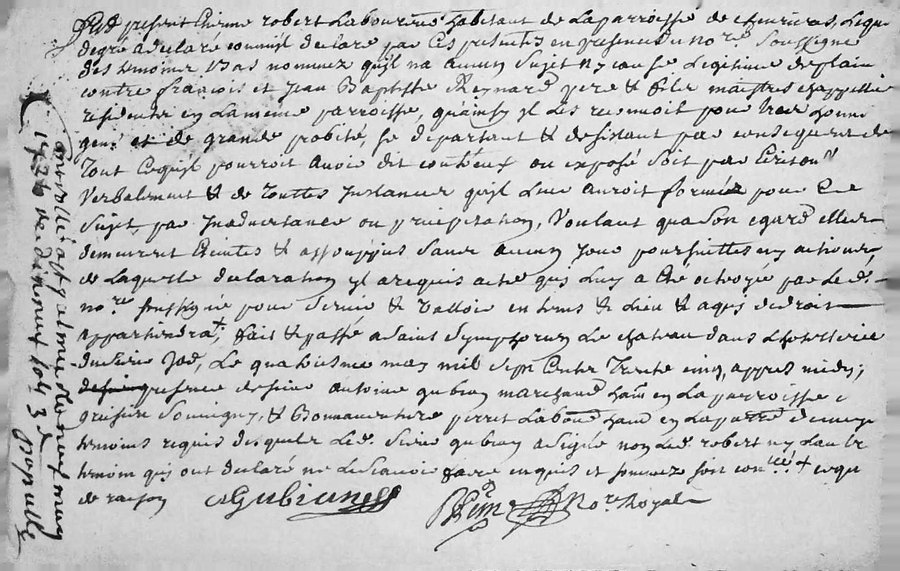 Fut present Etienne robert Laboureur habitant de Laparroisse de Lequel
degre a declaré comme il declare par ces presentes en presence du no.re Soussigné
des temoins bas nommez quil na aucun Sujet ny cause Legitime de plain
contre françois et Jean Baptiste Reynard pere & fils maistres chappelliers
residents en La meme parroisse, quainsy il Les reconnoit pour vrais honn
gens et de grande probité, Se departant & desistant par consequent de
Tout Cequil pourroit avoir dit contreux ou exposé Soit par Ecrit ou
Verbalement & de Touttes Instances quil Leur auroit formées pour Ce
Sujet par Inadvertance ou précipitation, Voulant qua Son egard elles
demeurent Eteintes & assoupies Sans aucun poursuittes ny actions,
de Laquelle declaration il a requis acte qui Luy a Eté octroyée par Led.
no.re Soussigné pour Servir & Valloir en tems & Lieu & a qui de droit
appartiendra, fait & passé a Saint Symphorien Le chateau dans Lhotellerie
du Sieur Jod, Le quatriesme may mil Sept Cents Trente cinq, appres midy,
presence de Sieur antoine gubian marchand hant en La parroisse
Souvigny, & Bonnaventure perret Labour hant en La parre
temoins requis desquels Led. Sieur gubian a signé non Led. robert ny Lautre
temoin qui ont declaré ne Le Scavoir faire enquis et Sommez Soit con.llé
de raison AGubian
no.re Royal
Controllé a St
may
1735